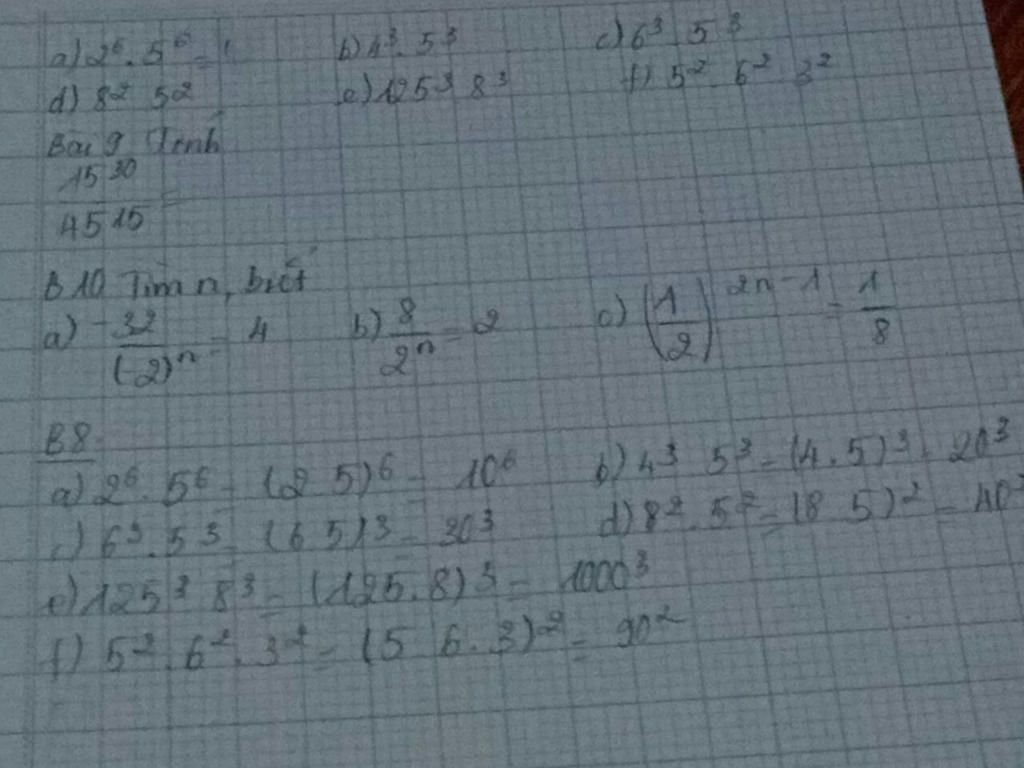 a) 2⁶ . 5⁶ = b) 4³ . 5³ c) 6³ 5³
d) 8² 5² e) 125³ 8³ f) 5² 6² 3²
Bài 9 Tính
15³⁰
45¹⁵ =
B 10 Tìm n, biết
a) -32/(-2)ⁿ = 4 b) 8/2ⁿ = 2 c) (1/2)²ⁿ⁻¹ = 1/8
B8
a) 2⁶ . 5⁶ = (2 5)⁶ = 10⁶ b) 4³ 5³ = (4 . 5)³ = 20³
c) 6³ . 5³ = (6 5)³ = 30³ d) 8² . 5² = (8 5)² = 40²
e) 125³ 8³ = (125 . 8)³ = 1000³
f) 5² 6² . 3² = (5 6 . 3)² = 90²